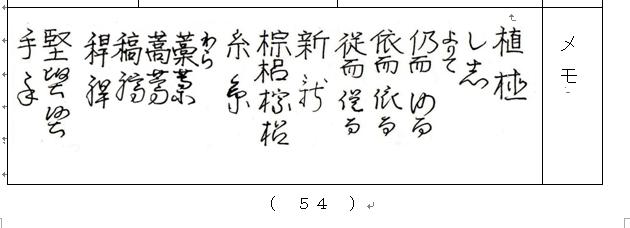 メモ
植植
し志
よりて
仍而仍而
依而依而
従而従而
新新
棕梠棕梠
糸糸
わら
藁藁
蒿蒿
稿稿
稈稈
堅堅堅
手手
( 54 )